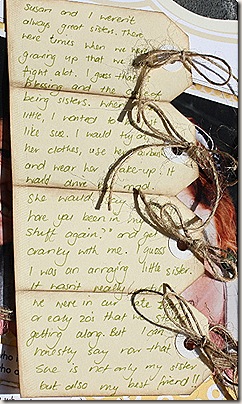 Susan and I weren't
always great sisters. There
were times when we were
growing up that we
fight alot. I guess that
Blessing and the of
being sisters. When
little, I wanted to
like sue. I would try on
her clothes, use her
and wear her make-up. It
would drive mad.
She would say
have you been in my
stuff again?" and get
cranky with me. I guess
I was an annoying little sister.
It wasn't really
we were in our late
or early 20's that we
getting along. But I can
honestly say now that
Sue is not only my sister
but also my best friend!!